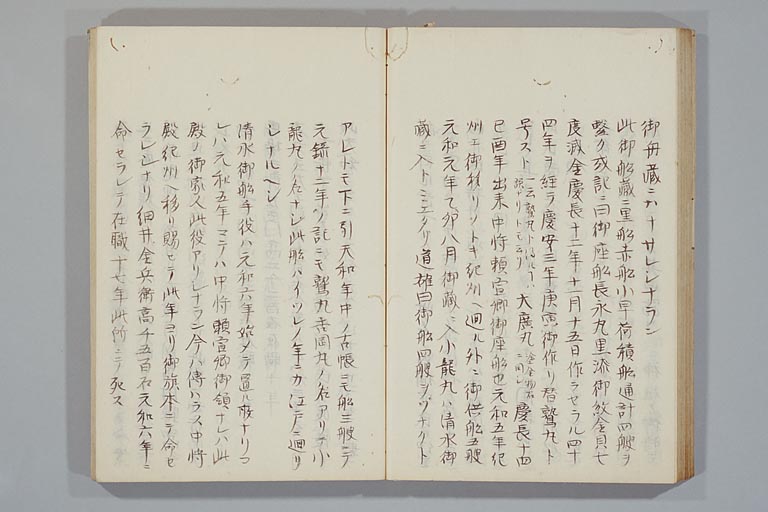 御舟蔵ニカナサレシナラン
此御船蔵ニ黒船赤船小早荷積船通計四艘ヲ
繋ク或記ニ曰御座船長永九黒漆御紋金貝七
度滅金慶長十二年十一月十五日作ラセラル四十
四年ヲ経テ慶安三年庚寅御作リ替鷲丸ト
号スト 大廣丸 慶長十四
己酉年出来中将頼宣卿御座船也元和五年紀
州エ御移リノトキ紀州ヘ廻ル外ニ御供船五艘
元和元年乙卯八月御蔵ニ入小龍丸ハ清水御
蔵ニ入トミエタリ道雄曰御船四艘ヲツナクト
アレトモ下ニ引天和年中ノ古帳ニモ船三艘ニテ
元録十二年ノ記ニモ鷲丸寺岡丸ノ名アリテ小
龍丸ノ名ナシ此船ハイツレノ年ニカ江戸ニ廻リ
シナルヘシ
清水御船手役ハ元和六年始メテ置ル所ナリコ
レハ元和五年マテハ中将頼宣卿御領ナレハ此
殿ノ御家人此役アリシナラン今ハ傳ハラス中将
殿紀州ヘ移リ賜セラ此年ヨリ御旗本ニテ命セ
ラレシナリ細井金兵衛高千五百石元和六年ニ
命セラレテ在職十七年此所ニテ死ス